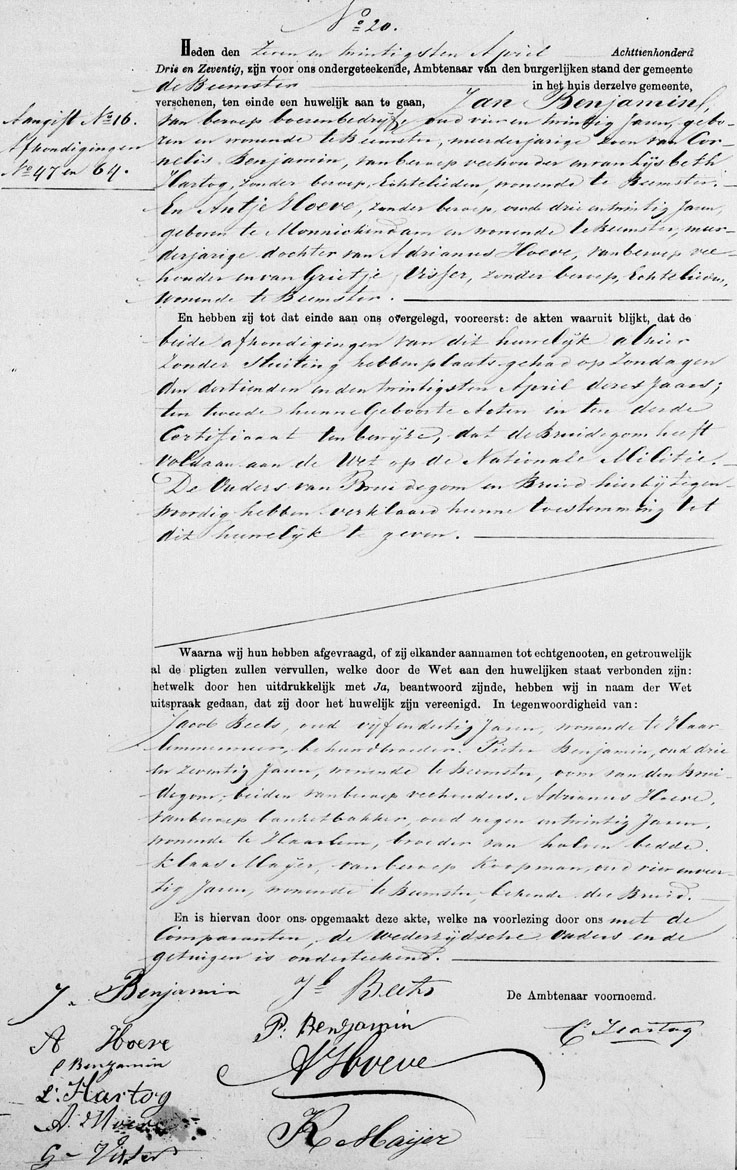 No 20.
Heden den zeven en twintigsten April Achttienhonderd
Drie en Zeventig, zijn voor ons ondergeteekende, Ambtenaar van den burgerlijken stand der gemeente
de Beemster in het huis derzelve gemeente,
verschenen, ten einde een huwelijk aan te gaan, Jan Benjamin,
Aangift No 16.
Afkondigingen
No 47 en 64.
van beroep boerenbedrijf, oud vier en twintig Jaren, gebo-
ren en wonende te Beemster, meerderjarige zoon van Cor-
nelis Benjamin, van beroep veehouder en van Lijsbeth
Hartog, zonder beroep, Echtelieden, wonende te Beemster.
En Antje Hoeve, zonder beroep, oud drie en twintig Jaren,
geboren te Monnickendam en wonende te Beemster, meer-
derjarige dochter van Adrianus Hoeve, van beroep vee-
houder en van Grietje Visser, zonder beroep, Echtelieden,
wonende te Beemster.
En hebben zij tot dat einde aan ons overgelegd, vooreerst: de akten waaruit blijkt, dat de
beide afkondigingen van dit huwelijk alhier
zonder stuiting hebben plaats gehad op Zondagen
den dertienden en den twintigsten April dezes Jaars;
ten tweede hunne Geboorte Acten en ten derde
Certificaat ten bewijze, dat de Bruidegom heeft
voldaan aan de Wet op de Nationale Militie.
De Ouders van Bruidegom en Bruid hierbij tegen-
woordig hebben verklaard hunne toestemming tot
dit huwelijk te geven.
Waarna wij hun hebben afgevraagd, of zij elkander aannamen tot echtgenooten, en getrouwelijk
al de pligten zullen vervullen, welke door de Wet aan den huwelijken staat verbonden zijn:
hetwelk door hen uitdrukkelijk met Ja, beantwoord zijnde, hebben wij in naam der Wet
uitspraak gedaan, dat zij door het huwelijk zijn vereenigd. In tegenwoordigheid van:
Jacob Beets, oud vijf en dertig Jaren, wonende te Haar-
lemmermeer, behuwdbroeder. Pieter Benjamin, oud drie
en zeventig Jaren, wonende te Beemster, oom van den Brui-
degom; beiden van beroep veehouders. Adrianus Hoeve,
van beroep banketbakker, oud negen en twintig Jaren,
wonende te Haarlem, broeder van halven bedde.
Klaas Maijer, van beroep Koopman, oud vier en veer-
tig Jaren, wonende te Beemster, bekende der Bruid.
En is hiervan door ons opgemaakt deze akte, welke na voorlezing door ons met de
Comparanten, de wederzijdsche Ouders en de
getuigen is onderteekend.
J. Benjamin
Jb Beets
De Ambtenaar voornoemd.
A Hoeve
P. Benjamin
C Hartog
C Benjamin
A Hoeve
L. Hartog
A. Hoeve
K Maijer
G Visser